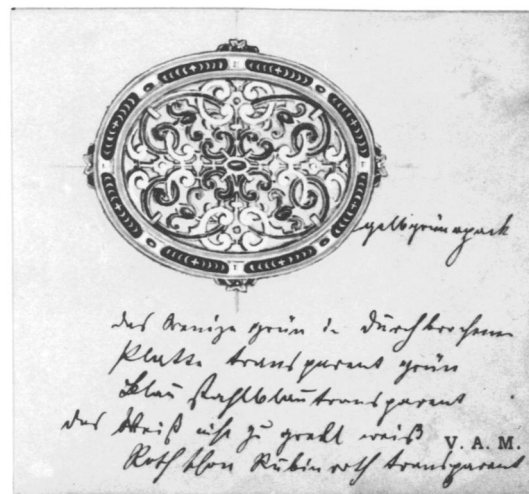 gelbgrün opack
das wenige grün in durchbrochener
Platte transparent grün
Blau stahlblau transparent
das Weiß nicht zu grell weiß
V. A. M.
Roth schon Rubinroth transparent